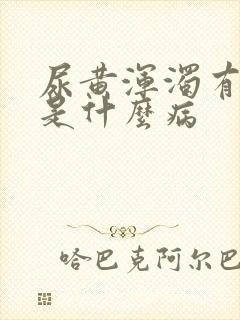 尿黄渾濁有
是什麼病
哈巴克阿尔巴